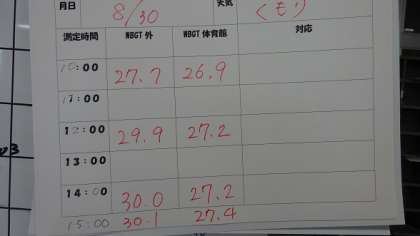 月日 8/30 天気 くもり
測定時間 WBGT 外 WBGT 体育館 対応
10:00 27.7 26.9
11:00
12:00 29.9 27.2
13:00
14:00 30.0 27.2
15:00 30.1 27.4